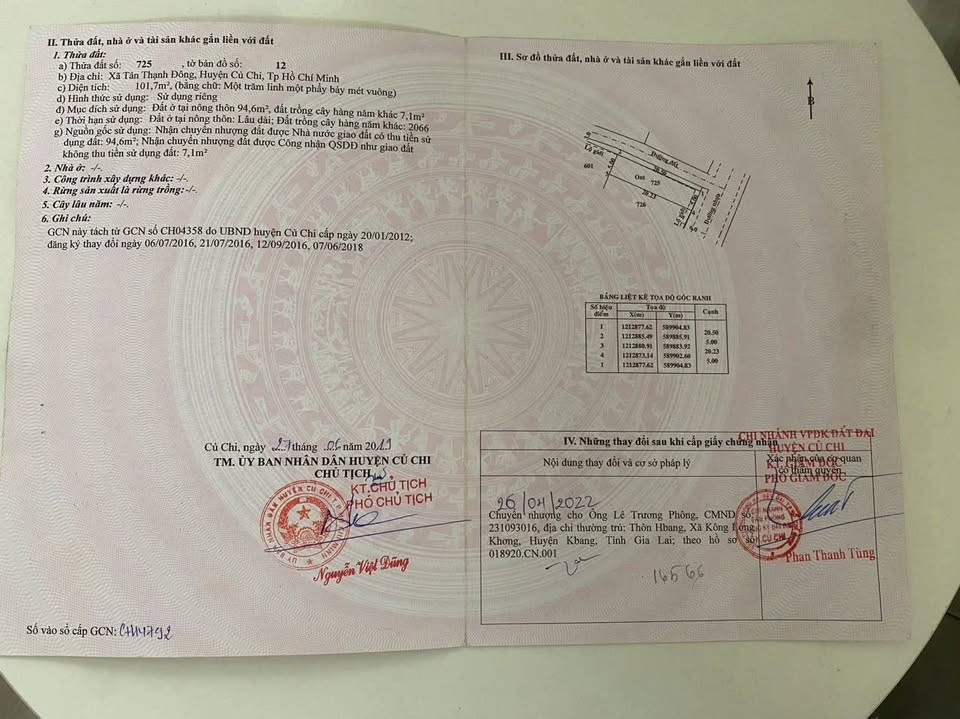 II. Thửa đất, nhà ở và tài sản khác gắn liền với đất
1. Thửa đất:
a) Thửa đất số: 725, tờ bản đồ số: 12
b) Địa chỉ: Xã Tân Thạnh Đông, Huyện Củ Chi, Tp Hồ Chí Minh
c) Diện tích: 101,7m², (bằng chữ: Một trăm linh một phẩy bảy mét vuông)
d) Hình thức sử dụng: Sử dụng riêng
đ) Mục đích sử dụng: Đất ở tại nông thôn 94,6m², đất trồng cây hàng năm khác 7,1m²
e) Thời hạn sử dụng: Đất ở tại nông thôn: Lâu dài; Đất trồng cây hàng năm khác: 2066
g) Nguồn gốc sử dụng: Nhận chuyển nhượng đất được Nhà nước giao đất có thu tiền sử
dụng đất: 94,6m²; Nhận chuyển nhượng đất được Công nhận QSDĐ như giao đất
không thu tiền sử dụng đất: 7,1m²
2. Nhà ở: -/-.
3. Công trình xây dựng khác: -/-.
4. Rừng sản xuất là rừng trồng:-/-.
5. Cây lâu năm: -/-.
6. Ghi chú:
GCN này tách từ GCN số CH04358 do UBND huyện Củ Chi cấp ngày 20/01/2012;
đăng ký thay đổi ngày 06/07/2016, 21/07/2016, 12/09/2016, 07/06/2018
Củ Chi, ngày 27 tháng 06 năm 2019
TM. ỦY BAN NHÂN DÂN HUYỆN CỦ CHI
CHỦ TỊCH
KT.CHỦ TỊCH
PHÓ CHỦ TỊCH
Nguyễn Việt Dũng
Số vào sổ cấp GCN: CH14792
III. Sơ đồ thửa đất, nhà ở và tài sản khác gắn liền với đất
B
Đường đá
Lộ giới
601
5.00
20.50
Ont
725
20.23
726
5.00
Lộ giới
Đường nhựa
BẢNG LIỆT KÊ TỌA ĐỘ GÓC RANH
Số hiệu điểm Tọa độ Cạnh
X(m) Y(m)
1 1212877.62 589904.83
20.50
2 1212885.49 589885.91
5.00
3 1212880.91 589883.92
20.23
4 1212873.14 589902.60
5.00
1 1212877.62 589904.83
IV. Những thay đổi sau khi cấp giấy chứng nhận
Nội dung thay đổi và cơ sở pháp lý
Xác nhận của cơ quan
có thẩm quyền
CHI NHÁNH VPĐK ĐẤT ĐAI
HUYỆN CỦ CHI
KT. GIÁM ĐỐC
PHÓ GIÁM ĐỐC
26/04/2022
Chuyển nhượng cho Ông Lê Trương Phông, CMND số:
231093016, địa chỉ thường trú: Thôn Hbang, Xã Kông Lơng
Khơng, Huyện Kbang, Tỉnh Gia Lai; theo hồ sơ số
018920.CN.001
Phan Thanh Tùng
16566